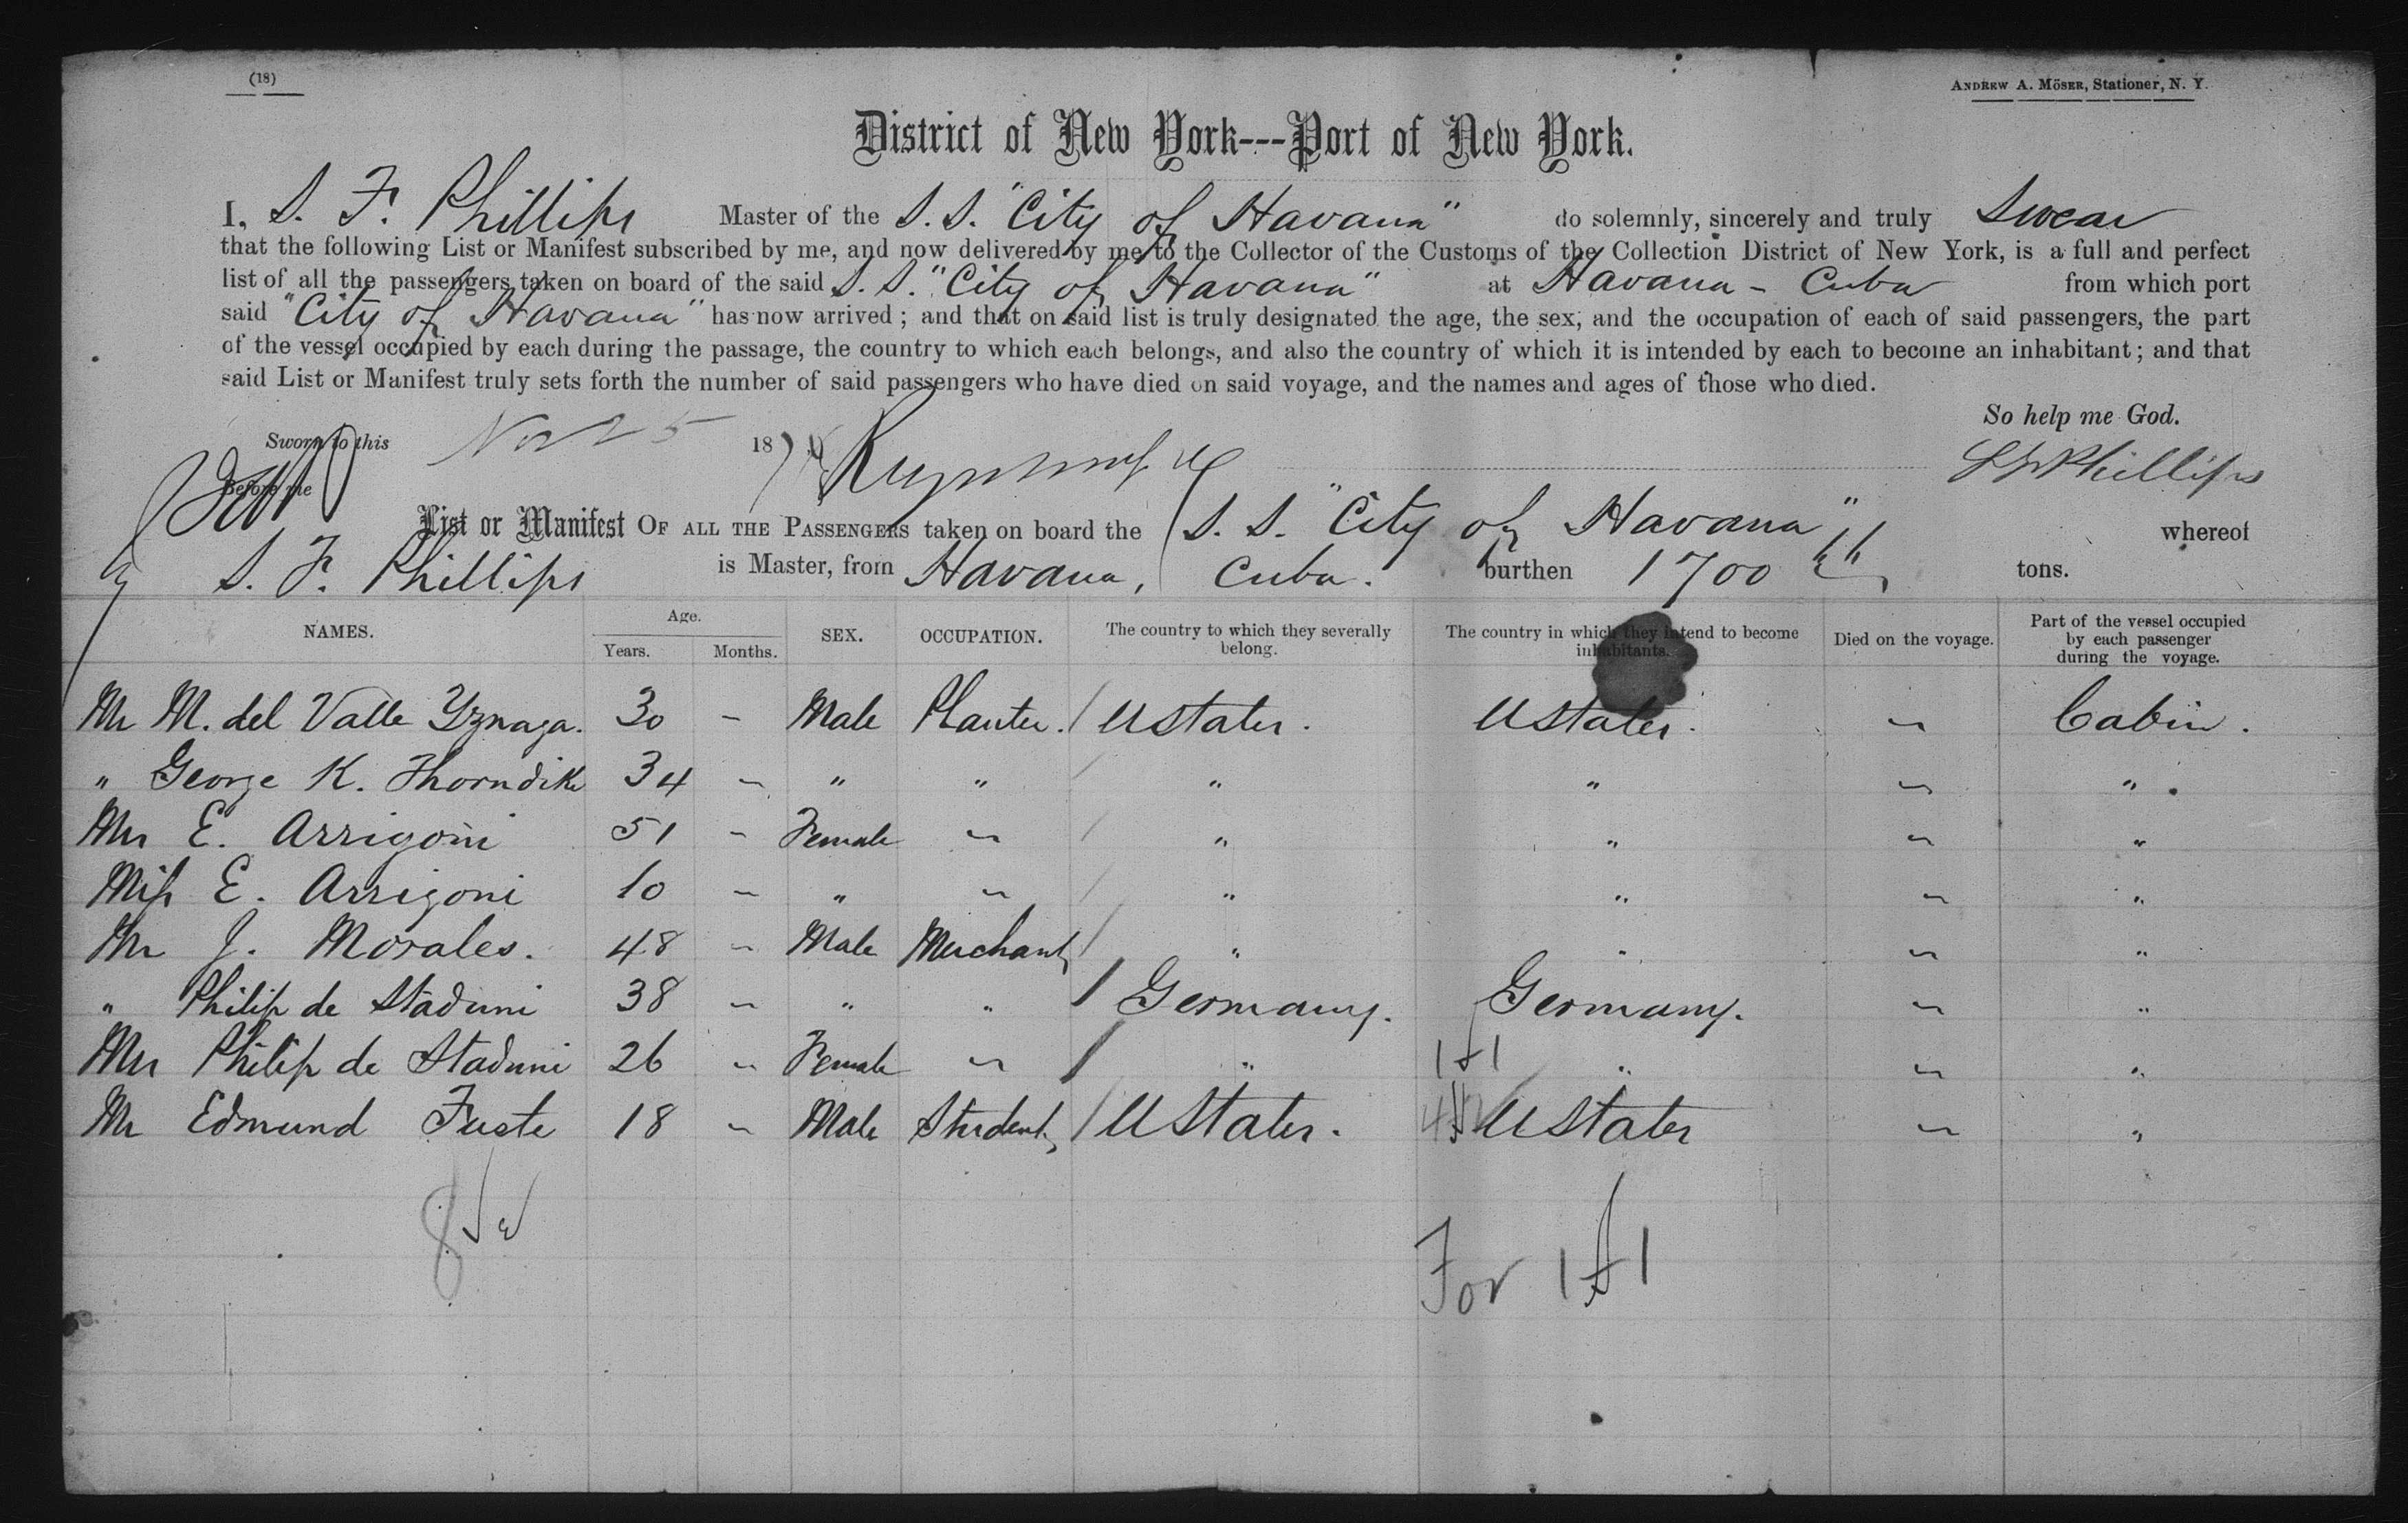 (18)
ANDREW A. MÖSER, Stationer, N. Y.
District of New York---Port of New York.
I, S. F. Phillips Master of the S. S. "City of Havana" do solemnly, sincerely and truly Swear
that the following List or Manifest subscribed by me, and now delivered by me to the Collector of the Customs of the Collection District of New York, is a full and perfect
list of all the passengers taken on board of the said S. S. "City of Havana" at Havana - Cuba from which port
said "City of Havana" has now arrived; and that on said list is truly designated the age, the sex, and the occupation of each of said passengers, the part
of the vessel occupied by each during the passage, the country to which each belongs, and also the country of which it is intended by each to become an inhabitant; and that
said List or Manifest truly sets forth the number of said passengers who have died on said voyage, and the names and ages of those who died.
So help me God.
Sworn to this Nov 25 18 S F Phillips
Before me
List or Manifest OF ALL THE PASSENGERS taken on board the S. S. "City of Havana" whereof
S. F. Phillips is Master, from Havana, Cuba. burthen 1700 tons.
NAMES. Age. Years. Months. SEX. OCCUPATION. The country to which they severally belong. The country in which they intend to become inhabitants. Died on the voyage. Part of the vessel occupied by each passenger during the voyage.
Mr M. del Valle Yznaga. 30 - Male Planter. / U States. U States. - Cabin.
" George K. Thorndike 34 - " " / " " - "
Mrs E. Arrigoni 51 - Female - / " " - "
Miss E. Arrigoni 10 - " - / " " - "
Mr J. Morales. 48 - Male Merchant / " " - "
" Philip de Staduni 38 - " " / Germany. Germany. - "
Mrs Philip de Staduni 26 - Female - / " 1 f 1 " - "
Mr Edmund Fuste 18 - Male Student / U States. U States - "
8
For 1 f 1